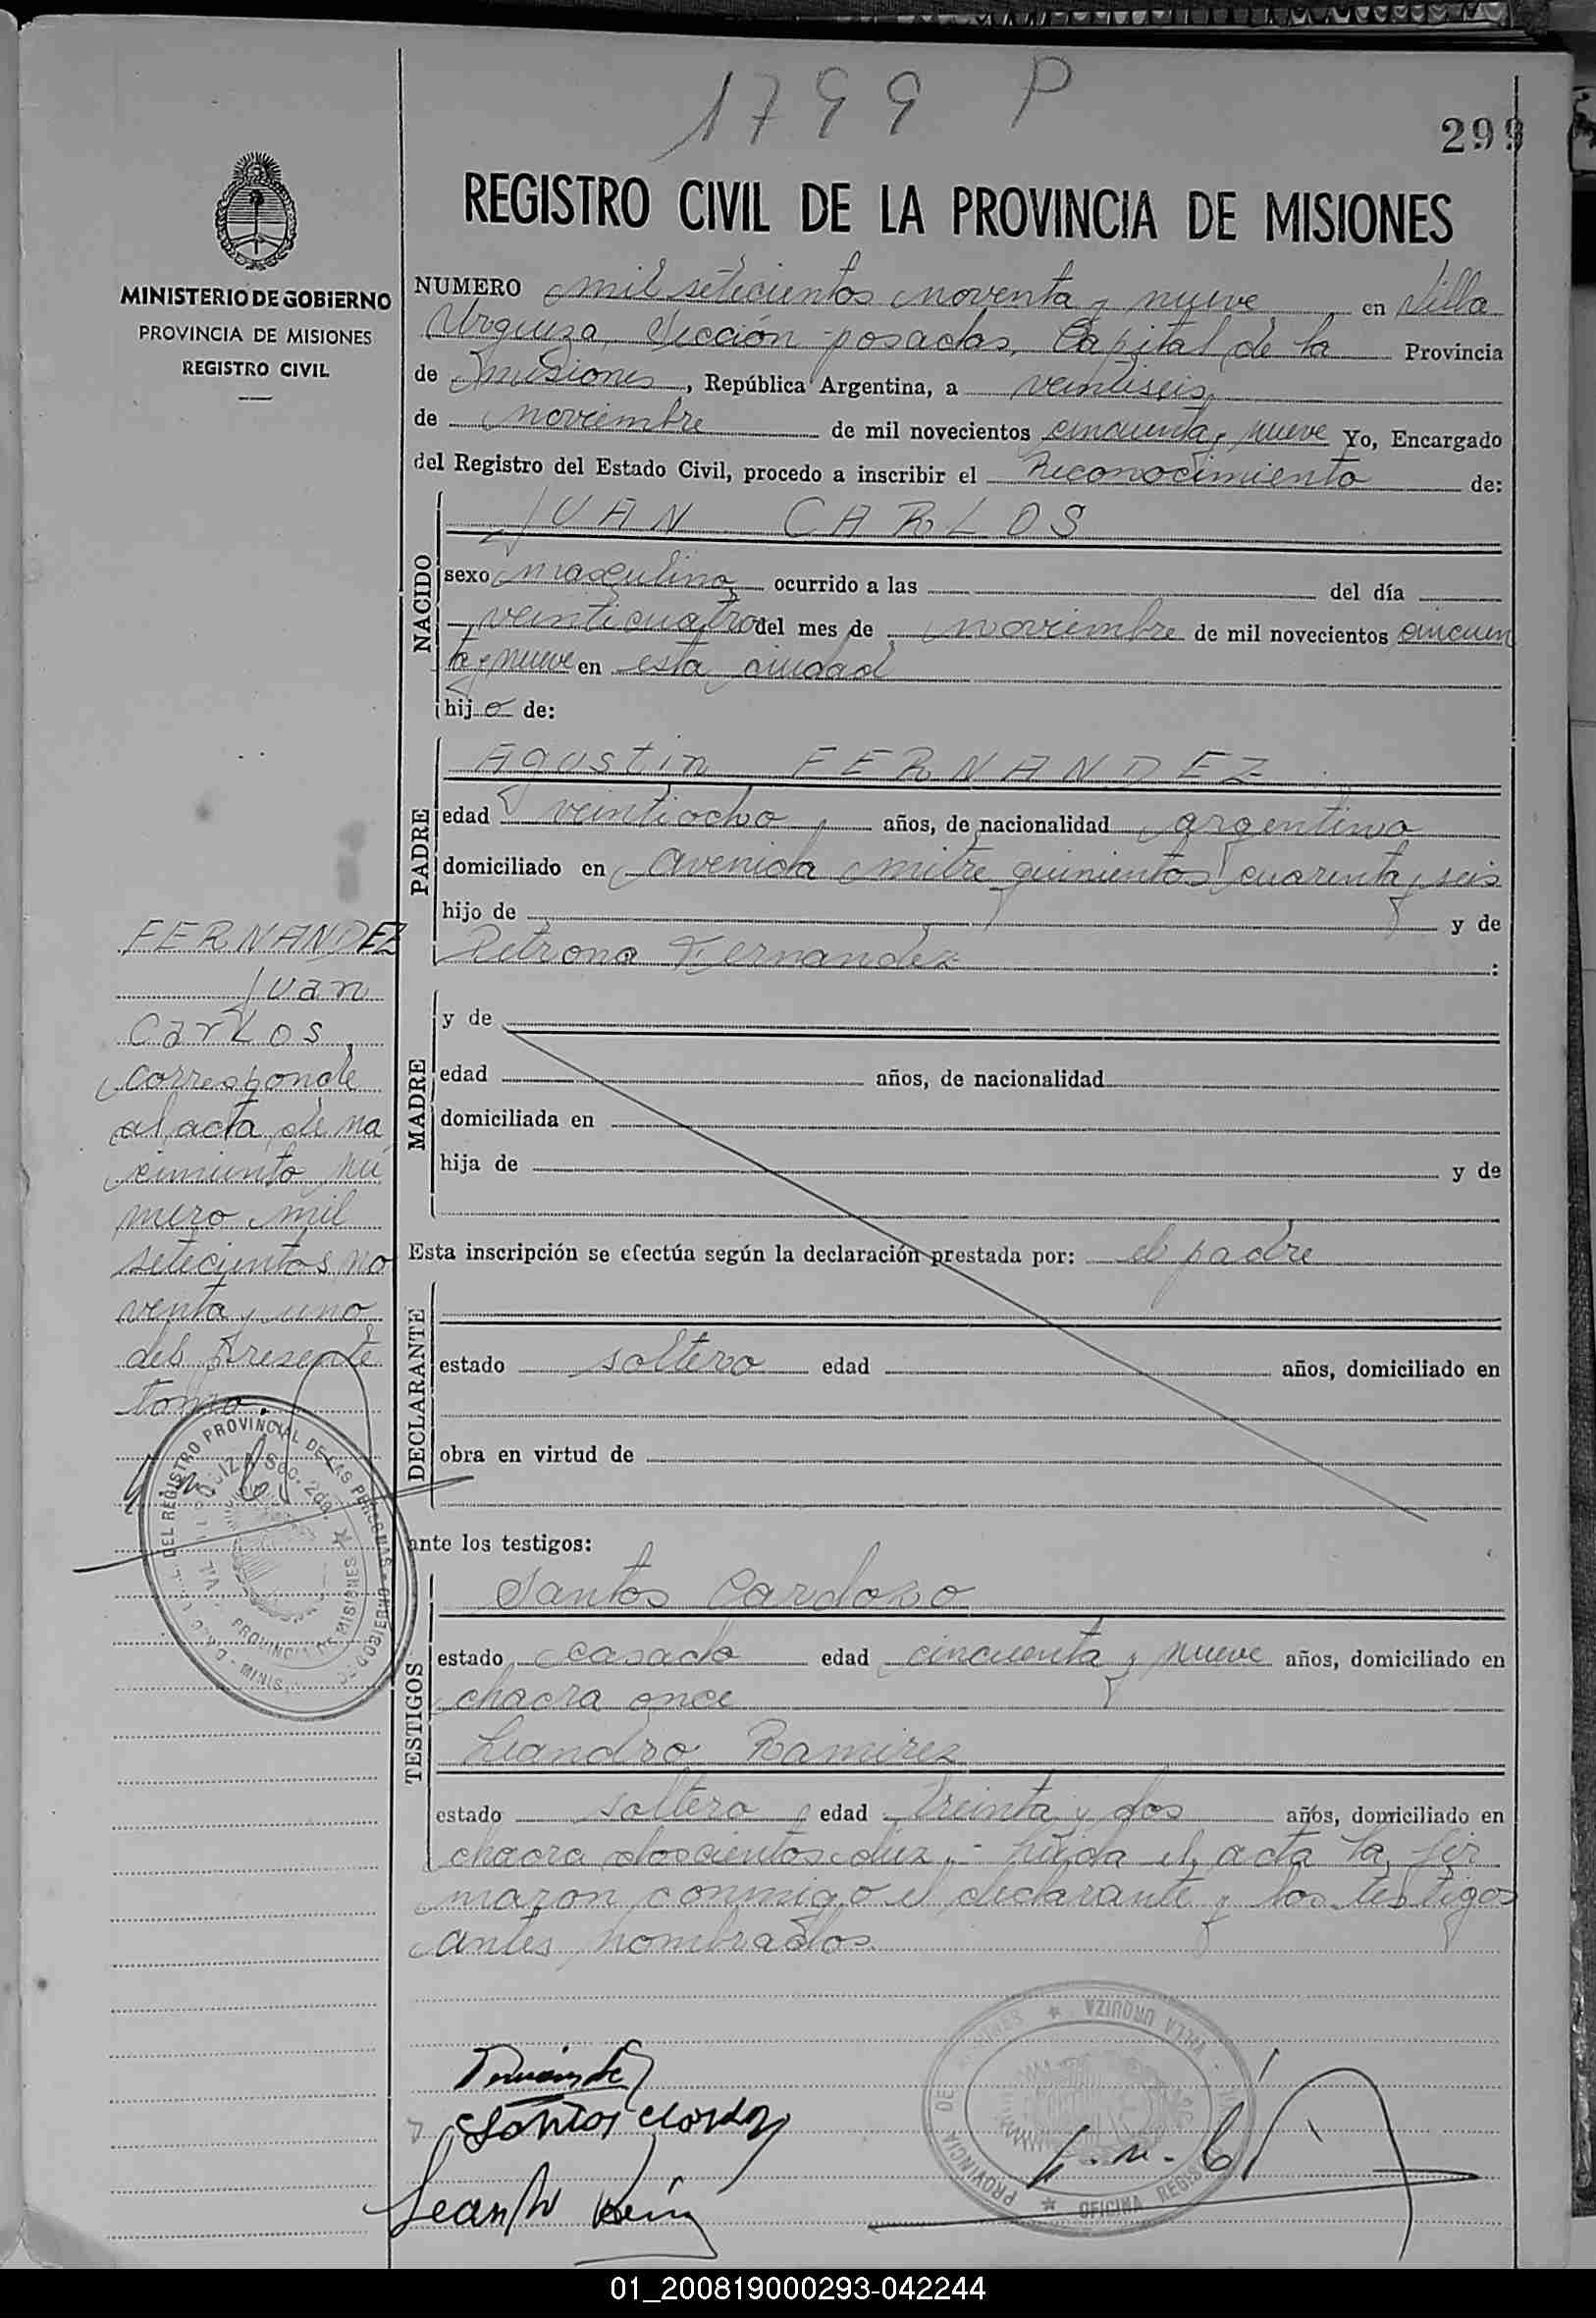 1799 P
299
REGISTRO CIVIL DE LA PROVINCIA DE MISIONES
MINISTERIO DE GOBIERNO
PROVINCIA DE MISIONES
REGISTRO CIVIL
NUMERO mil setecientos noventa y nueve en Villa
Urquiza, Sección posadas, Capital de la Provincia
de Misiones, República Argentina, a veintiseis
de noviembre de mil novecientos cincuenta y nueve Yo, Encargado
del Registro del Estado Civil, procedo a inscribir el Reconocimiento de:
NACIDO
JUAN CARLOS
sexo masculino ocurrido a las del día
veinticuatro del mes de noviembre de mil novecientos cincuen
ta y nueve en esta ciudad
hijo de:
PADRE
Agustin FERNANDEZ
edad veintiocho años, de nacionalidad argentino
domiciliado en avenida mitre quinientos cuarenta y seis
hijo de y de
Petrona Fernandez :
MADRE
y de
edad años, de nacionalidad
domiciliada en
hija de y de
Esta inscripción se efectúa según la declaración prestada por: el padre
DECLARANTE
estado soltero edad años, domiciliado en
obra en virtud de
ante los testigos:
TESTIGOS
Santos Cardozo
estado casado edad cincuenta y nueve años, domiciliado en
chacra once
Leandro Ramirez
estado soltero edad treinta y dos años, domiciliado en
chacra doscientos diez.- leída el acta la fir
maron conmigo el declarante y los testigos
antes nombrados.
FERNANDEZ
Juan
Carlos
corresponde
al acta de na
cimiento nú
mero mil
setecientos no
venta y uno
del presente
tomo.
DEL REGISTRO PROVINCIAL DE LAS PERSONAS
Sec. 2da.
PROVINCIA DE MISIONES
Fernandez
Santos Cardozo
VILLA URQUIZA
PROVINCIA DE
OFICINA
01_200819000293-042244